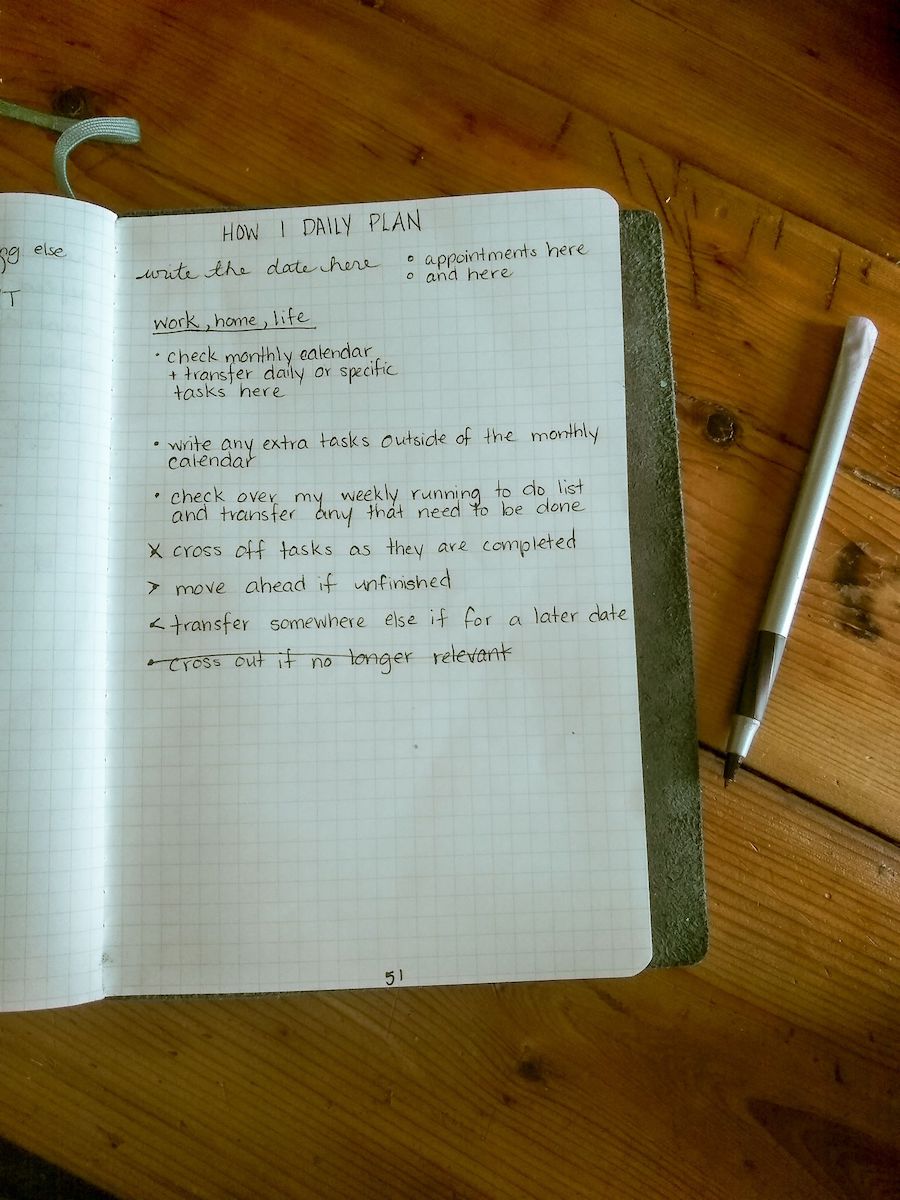 else
T
HOW I DAILY PLAN
write the date here
° appointments here
° and here
work, home, life
• check monthly calendar
+ transfer daily or specific
tasks here
• write any extra tasks outside of the monthly
calendar
• check over my weekly running to do list
and transfer any that need to be done
X cross off tasks as they are completed
> move ahead if unfinished
< transfer somewhere else if for a later date
• cross out if no longer relevant
51